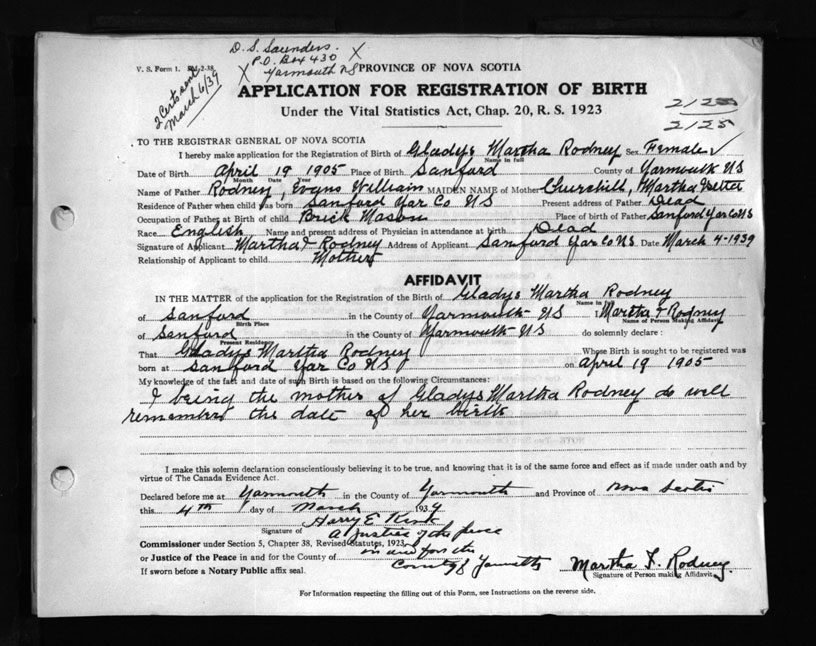 D. S. Saunders.
P.O. Box 430
Yarmouth NS
V. S. Form 1.
2 Certs sent
March 6/39
PROVINCE OF NOVA SCOTIA
APPLICATION FOR REGISTRATION OF BIRTH
Under the Vital Statistics Act, Chap. 20, R. S. 1923
2125
2125
TO THE REGISTRAR GENERAL OF NOVA SCOTIA
I hereby make application for the Registration of Birth of Gladys Martha Rodney Sex Female
Name in full
Date of Birth April 19 1905 Place of Birth Sanford County of Yarmouth NS
Month Date Year
Name of Father Rodney, Evans William MAIDEN NAME of Mother Churchill, Martha
Residence of Father when child was born Sanford Yar Co NS Present address of Father Dead
Occupation of Father at Birth of child Brick Mason Place of birth of Father Sanford Yar Co NS
Race English Name and present address of Physician in attendance at birth Dead
Signature of Applicant Martha F Rodney Address of Applicant Sanford Yar Co NS Date March 4-1939
Relationship of Applicant to child Mother
AFFIDAVIT
IN THE MATTER of the application for the Registration of the Birth of Gladys Martha Rodney
Name in full
of Sanford in the County of Yarmouth NS I Martha F Rodney
Birth Place Name of Person Making Affidavit
of Sanford in the County of Yarmouth NS do solemnly declare :
Present Residence
That Gladys Martha Rodney Whose Birth is sought to be registered was
born at Sanford Yar Co NS on April 19 1905
My knowledge of the fact and date of such Birth is based on the following Circumstances:
I being the mother of Gladys Martha Rodney do well
remember the date of her birth
I make this solemn declaration conscientiously believing it to be true, and knowing that it is of the same force and effect as if made under oath and by
virtue of The Canada Evidence Act.
Declared before me at Yarmouth in the County of Yarmouth and Province of Nova Scotia
this 4th day of March 1939
Harry E Kirk
Signature of A Justice of the peace
Commissioner under Section 5, Chapter 38, Revised Statutes, 1923
or Justice of the Peace in and for the County of in and for the
County of Yarmouth
If sworn before a Notary Public affix seal.
Martha F. Rodney
Signature of Person making Affidavit
For Information respecting the filling out of this Form, see Instructions on the reverse side.